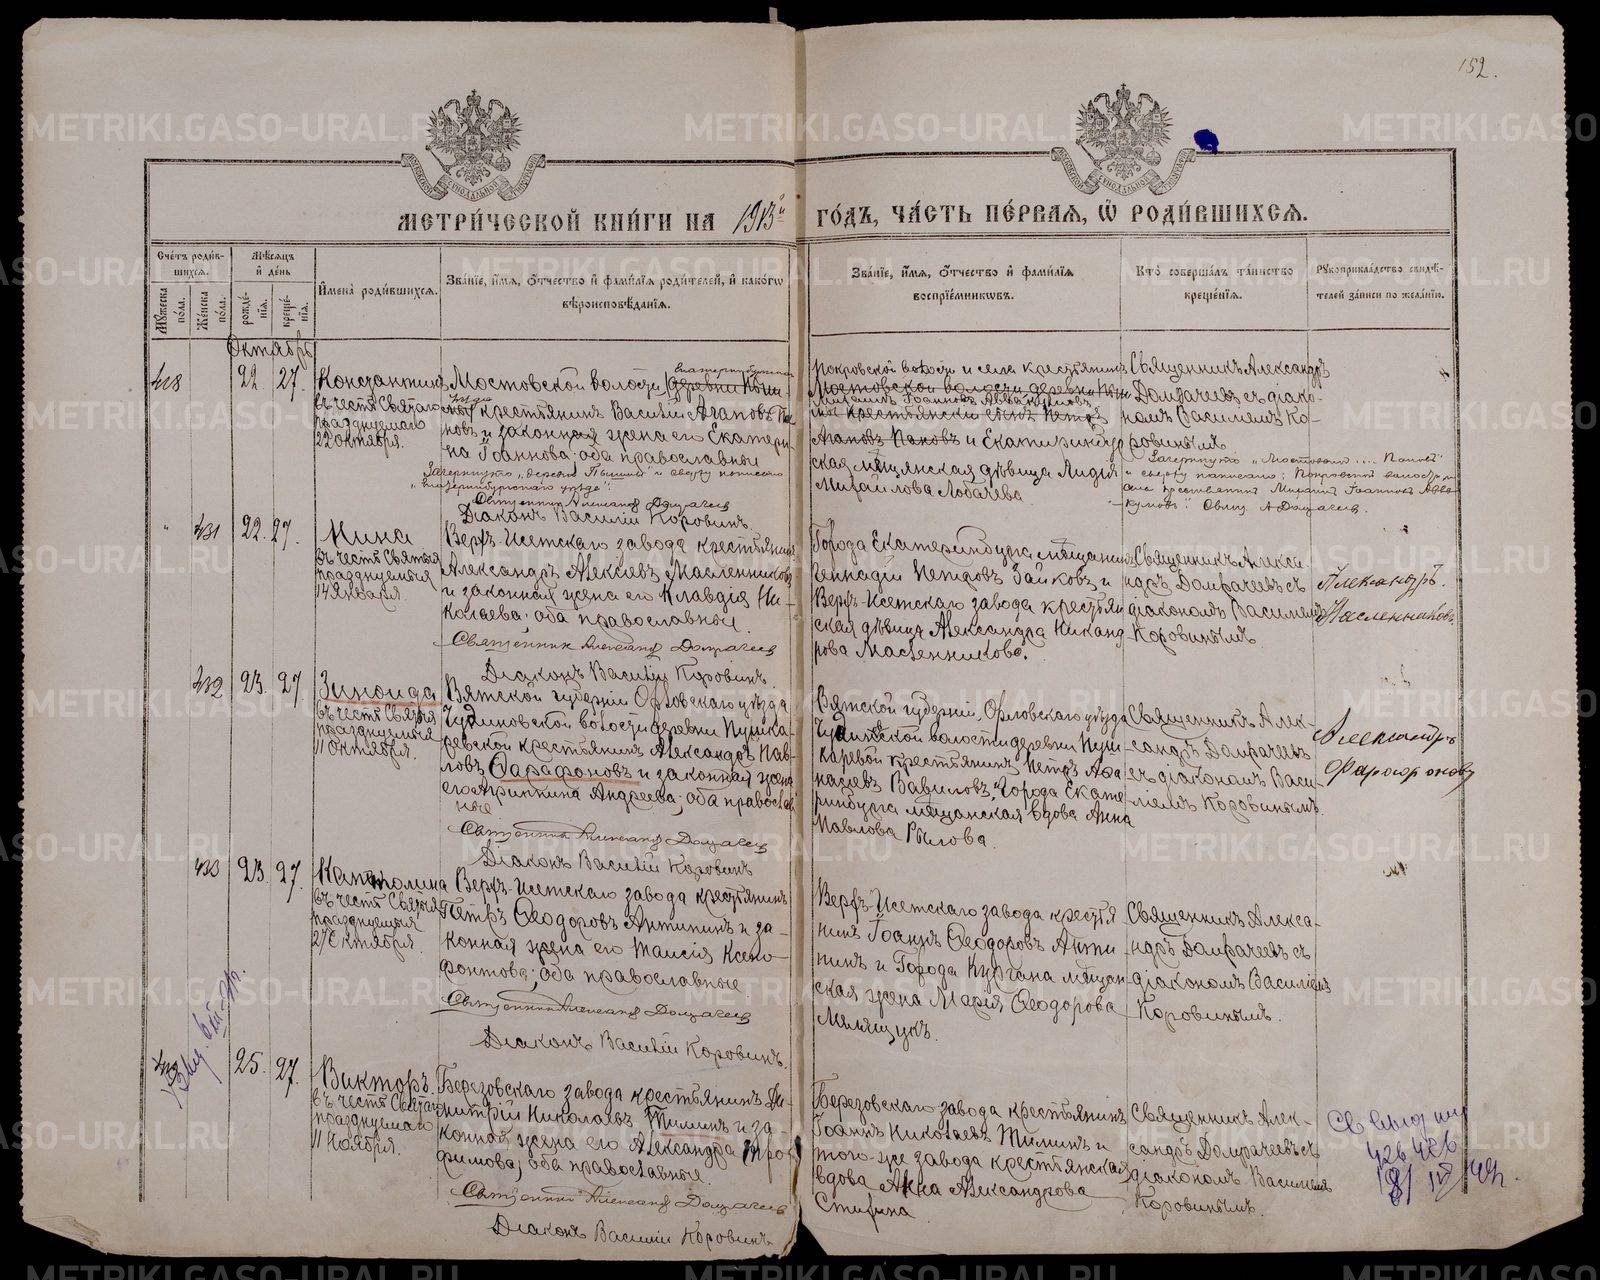 152.
МЕТРИ́ЧЕСКОЙ КНИ́ГИ НА 1913й ГО́ДЪ, ЧА́СТЬ ПЕ́РВАЯ, Ѡ РОДИ́ВШИХСЯ.
Сче́тъ роди́в-
шихся.
Мꙋ́жеска по́ла.
Же́нска по́ла.
Мѣ́сяцъ и де́нь
рожде́-
нїя.
креще́-
нїя.
Имена̀ роди́вшихся.
Зва́нїе, и́мя, о́тчество и фами́лїя роди́телей, и како́гѡ
вѣроисповѣ́данїя.
Зва́нїе, и́мя, о́тчество и фами́лїя
воспрїе́мникѡвъ.
Кто̀ соверша́лъ та́инство
креще́нїя.
Рꙋкоприкла́дство свидѣ́-
телей за́писи по жела́нїю.
Октябрь
428
22. 27.
Константинъ
въ честь Святаго
празднуемаго
22 октября.
Мостовской волости, деревни
Екатеринбургскаго
крестьянинъ Василій Агаповъ Па-
новъ и законная жена его Екатери-
на Іоаннова; оба православные
Зачеркнуто „деревни Пышмы" и сверху написано
„Екатеринбургскаго уѣзда":
Священникъ Александръ Домрачевъ
Діаконъ Василій Коровинъ.
Покровской волости и села крестьянинъ
Мостовской волости деревни
Михаилъ Іоанновъ Аввакумовъ
Агаповъ Пановъ и Екатеринбур
ская мѣщанская дѣвица Лидія
Михайлова Лобачева
Священникъ Александръ
Домрачевъ съ діако-
номъ Василіемъ Ко-
ровинымъ
Зачеркнуто „Мостовской .... Пановъ"
и сверху написано: Покровской волости и
села крестьянинъ Михаилъ Іоанновъ Авва-
кумовъ". Свящ. А Домрачевъ.
431 22. 27.
Нина
въ честь Святыя
празднуемыя
14 января.
Верхъ-Исетскаго завода крестьянинъ
Александръ Алексѣевъ Масленниковъ
и законная жена его Клавдія Ни-
колаева; оба православные.
Священникъ Александръ Домрачевъ
Діаконъ Василій Коровинъ.
Города Екатеринбурга мѣщанинъ
Геннадій Петровъ Зайковъ и
Верхъ-Исетскаго завода крестьян
ская дѣвица Александра Никанд
рова Масленникова.
Священникъ Алекса
ндръ Домрачевъ съ
діакономъ Василіемъ
Коровинымъ
Александръ
Масленниковъ.
432 23. 27.
Зинаида
въ честь Святыя
празднуемыя
11 октября.
Вятской губерніи Орловскаго уѣзда
волости деревни Пушка-
ревской крестьянинъ Александръ Пав-
ловъ Сарафоновъ и законная жена
его Агриппина Андреева; оба православ
ные
Священникъ Александръ Домрачевъ
Діаконъ Василій Коровинъ
Вятской губерніи, Орловскаго уѣзда
волости деревни Пуш-
каревой крестьянинъ Петръ Афа
насьевъ Вавиловъ, Города Екате-
ринбурга мѣщанская вдова Анна
Павлова Рылова.
Священникъ Алек-
сандръ Домрачевъ
съ діакономъ Васи-
ліемъ Коровинымъ
Александръ
433 23. 27.
Капитолина
въ честь Святыя
празднуемыя
27 октября.
Верхъ-Исетскаго завода крестьянинъ
Петръ Ѳеодоровъ Антипинъ и за-
конная жена его Таисія Ксено-
фонтова; оба православные
Священникъ Александръ Домрачевъ
Діаконъ Василій Коровинъ.
Верхъ-Исетскаго завода крестья
нинъ Іоаннъ Ѳеодоровъ Анти
пинъ и Города Кургана мѣщан-
ская жена Марія Ѳеодорова
Мелящукъ.
Священникъ Алекса-
ндръ Домрачевъ съ
діакономъ Василіемъ
Коровинымъ.
25. 27.
Викторъ.
въ честь Святаго
празднуемаго
11 Ноября.
Березовскаго завода крестьянинъ Ди-
митрій Николаевъ Тиминъ и за-
конная жена его Александра Троф
фимова; оба православные.
Священникъ Александръ Домрачевъ
Діаконъ Василій Коровинъ.
Березовскаго завода крестьянинъ
Іоаннъ Николаевъ Тиминъ и
того-же завода крестьянская
вдова Анна Александрова
Священникъ Алек-
сандръ Домрачевъ съ
діакономъ Василіемъ
Коровинымъ.
METRIKI.GASO-URAL.RU